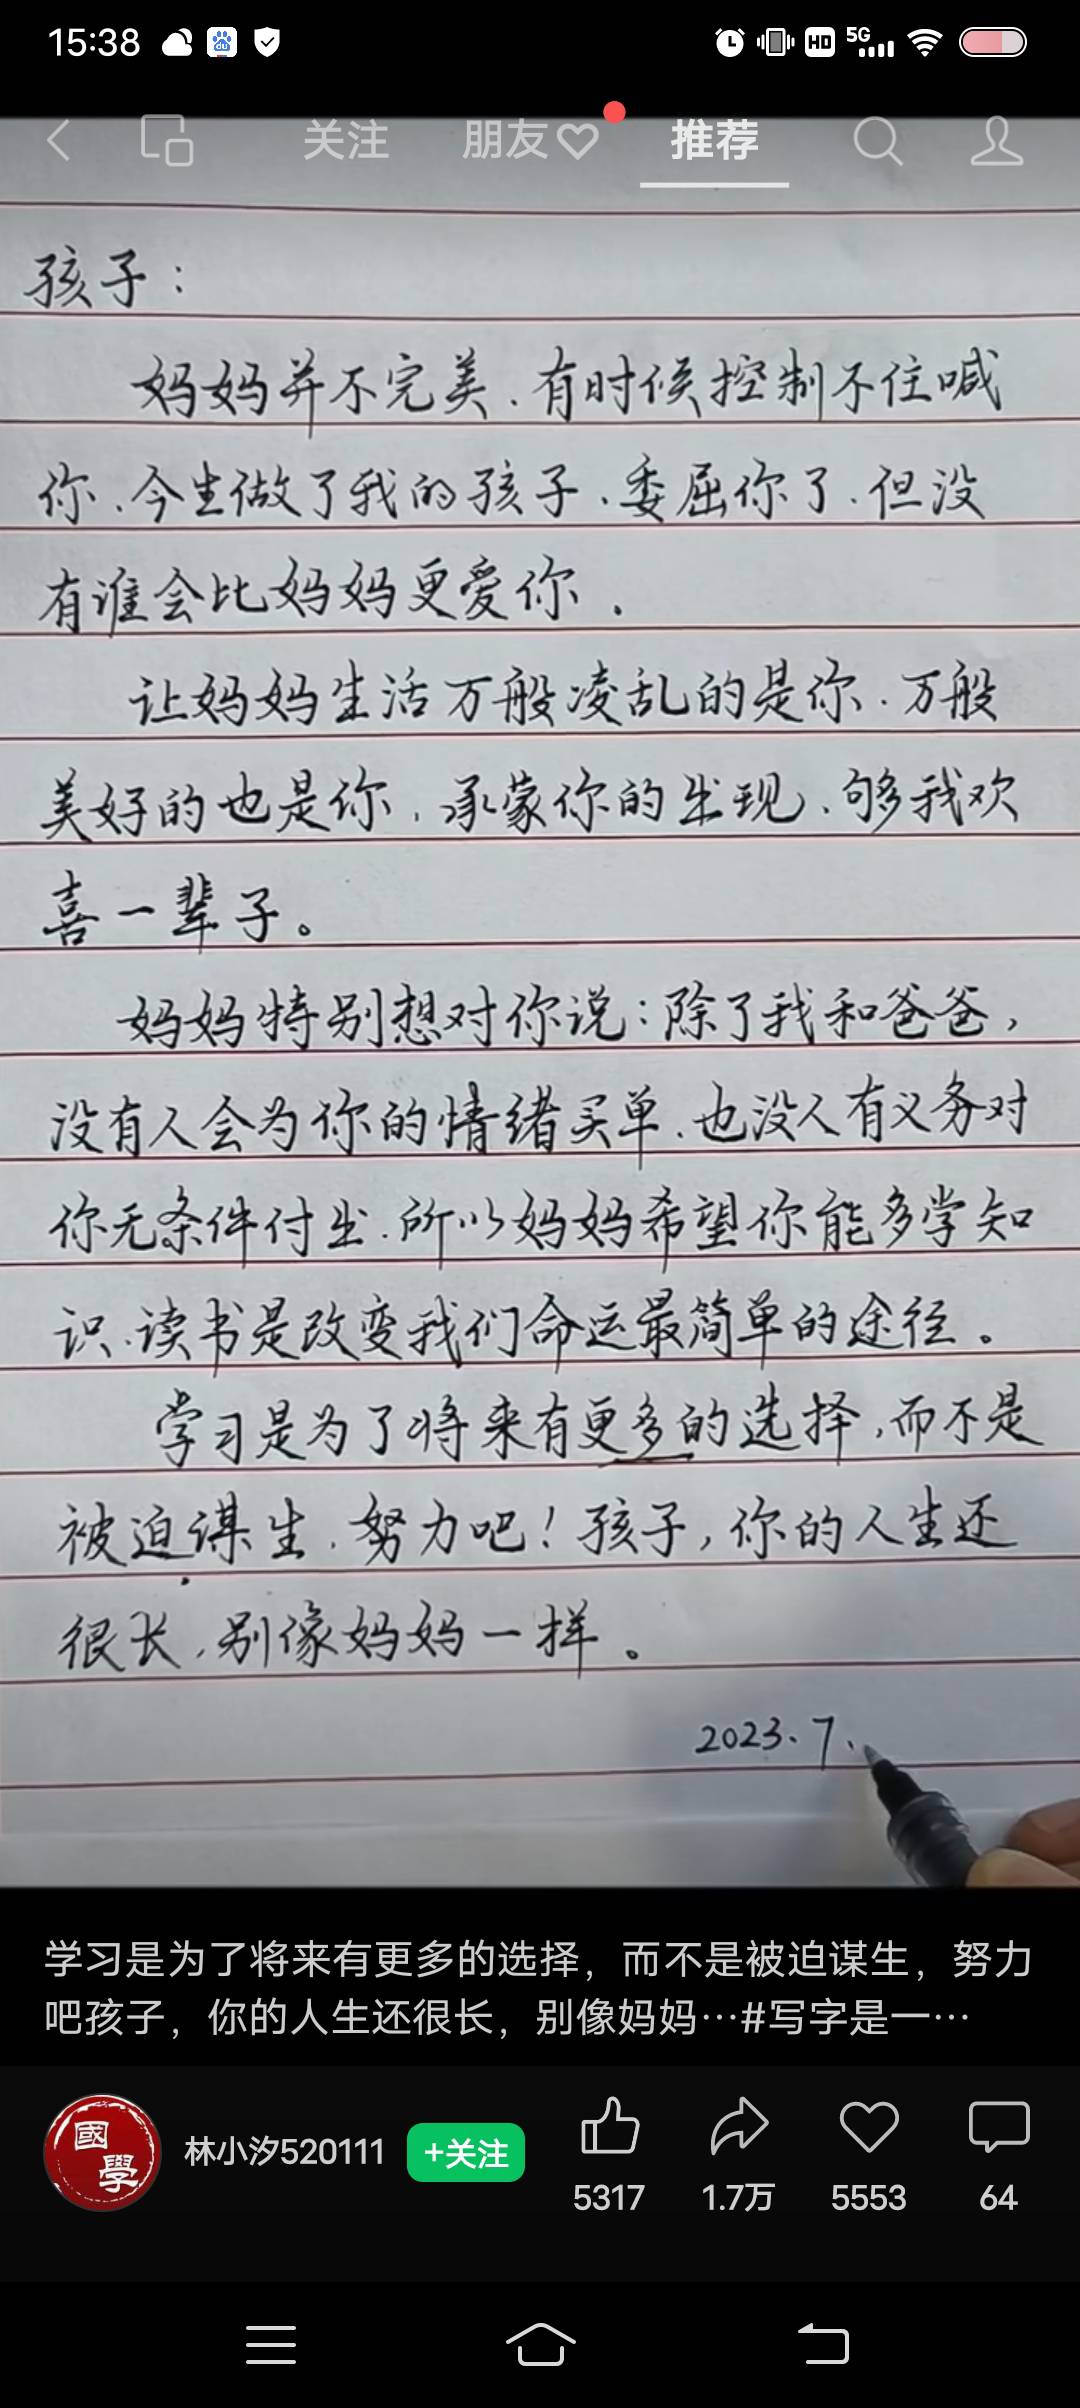 15:38
5G
HD
关注 朋友 推荐
孩子：
妈妈并不完美.有时候控制不住喊
你.今生做了我的孩子.委屈你了.但没
有谁会比妈妈更爱你.
让妈妈生活万般凌乱的是你.万般
美好的也是你，承蒙你的出现.够我欢
喜一辈子。
妈妈特别想对你说：除了我和爸爸，
没有人会为你的情绪买单.也没人有义务对
你无条件付出.所以妈妈希望你能多学知
识.读书是改变我们命运最简单的途径。
学习是为了将来有更多的选择，而不是
被迫谋生.努力吧！孩子，你的人生还
很长，别像妈妈一样。
2023.7.
学习是为了将来有更多的选择，而不是被迫谋生，努力
吧孩子，你的人生还很长，别像妈妈…#写字是一…
國學
林小汐520111 +关注
5317 1.7万 5553 64